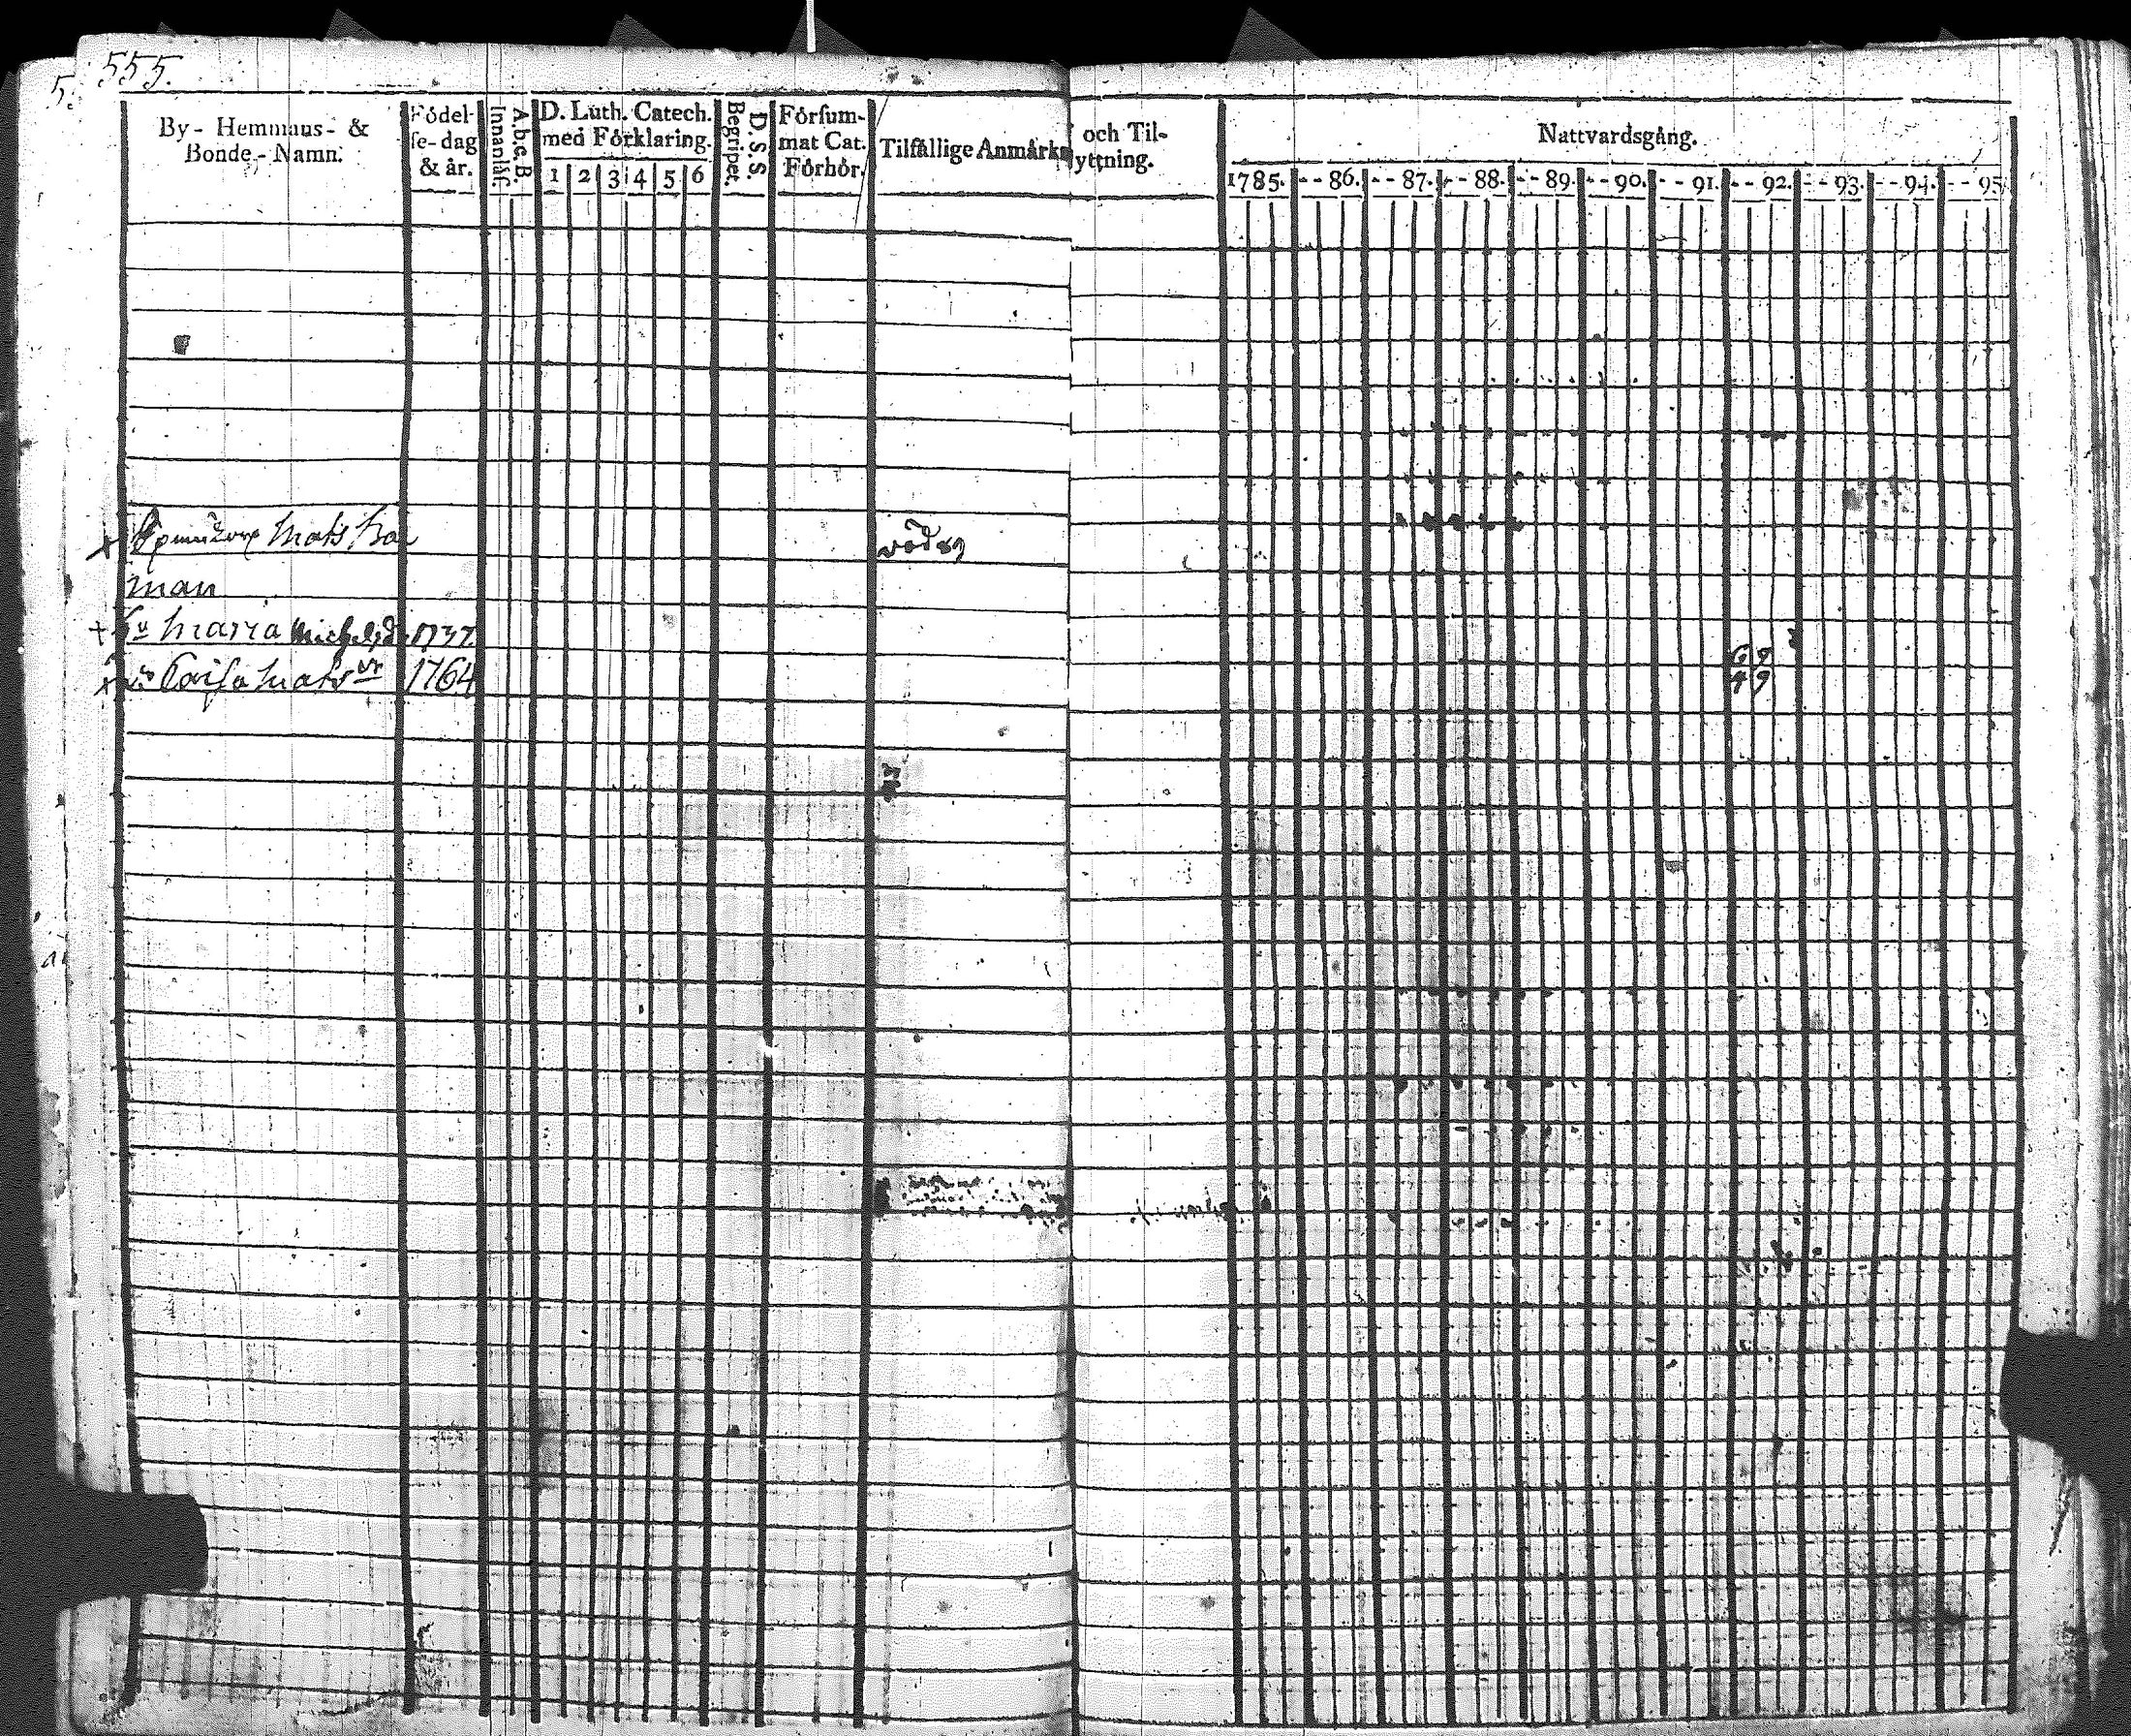 555.
By- Hemmans- &
Bonde- Namn.
Födel-
se-dag
& år.
A.b.c.B.
Innanläs.
D. Luth. Catech.
med Förklaring.
1 2 3 4 5 6
D.S.S.
Begripet.
Försum-
mat Cat.
Förhör.
Tilfällige Anmärkn
och Til-
yttning.
Nattvardsgång.
1785. - - 86. - - 87. - - 88. - - 89. - - 90. - - 91. - - 92. - - 93. - - 94. - - 95
Mats
man
Maria 1737.
Caisa Mats 1764